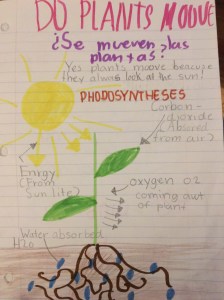 DO PLANTS MOOVE
¿Se mueven las
plantas?
Yes plants moove becuse
they always look at the sun!
PHODOSYNTHESES
Carbon-
dioxide
(abored
from air)
Enirgy
(From
Sun lite)
oxygen O2
coming out
of plant
Water absorbed
H2O